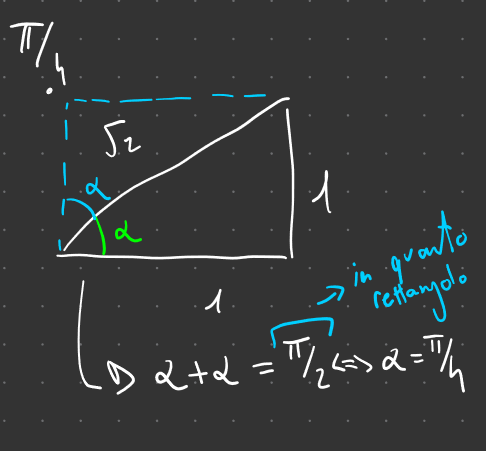 π/4
√2
α
α
1
1
in quanto
rettangolo
α+α = π/2 <=> α = π/4